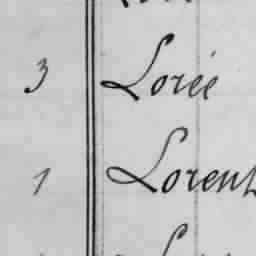 3 Lorée
1 Lorent